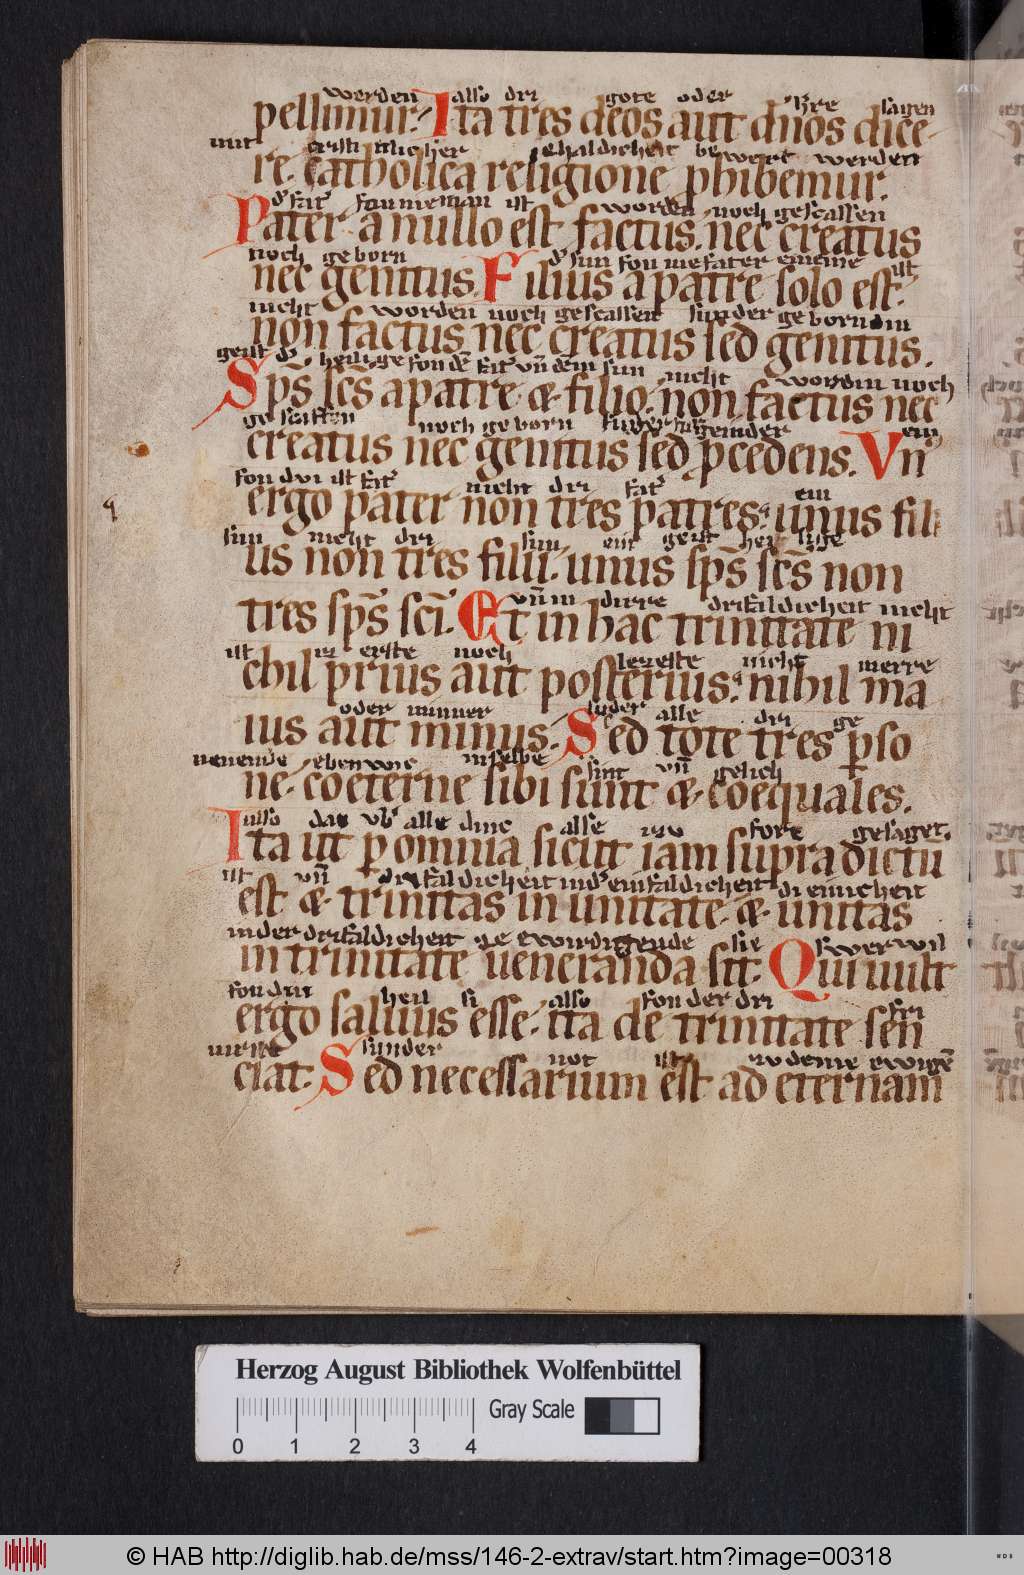 werden also dri gote oder h're sagen
pellimur. Ita tres deos aut dn̄os dice
mit cristinlicher ehaldicheit bewert werden
re. catholica religione phibemur.
d' fat' fon nieman ist worden noch gescaffen
Pater a nullo est factus. nec creatus
noch geborn d' sun fon me fater eineme ist
nec genitus. Filius a patre solo est.
nicht worden noch gescaffen sunder geborn
non factus nec creatus sed genitus.
geist d' heilige fon dē fat' vn̄ dem sun nicht wordin noch
Sps̄ scs̄ a patre & filio. non factus nec
gescaffen noch geborn sunder ein
creatus nec genitus sed pcedens. Vn'
fon dvi ist fat' nicht dri fat' ein
ergo pater non tres patres. unus fili
sun nicht dri sun ein geist heilige
us non tres filii. unus sps̄ scs̄ non
vn̄ in dirre drifaldicheit nicht
tres sps̄ sci. Et in hac trinitate ni
ist erste noch leneste nicht merre
chil prius aut posterius. nihil ma
oder minner sunder alle dri ge
ius aut minus. Sed tote tres pso
nenende ebenewic in selbe sint vn̄ gelich
ne. coeterne sibi sunt & coequales.
also daz vb' alle dinc alse nv fore gesaget.
Ita ut p omnia sicut iam supra dictu
ist vn̄ drifaldicheit in d' einfaldicheit di einicheit
est & trinitas in unitate. & unitas
in der drifaldicheit ge ewirdigende sie swer wil
in trinitate ueneranda sit. Qui uult
fon diu heil si also fon der dri
ergo saluus esse. ita de trinitate sen
sunder not ist zv deme ewigē
ciat. Sed necessarium est ad eternam
Herzog August Bibliothek Wolfenbüttel
Gray Scale
0 1 2 3 4
© HAB http://diglib.hab.de/mss/146-2-extrav/start.htm?image=00318